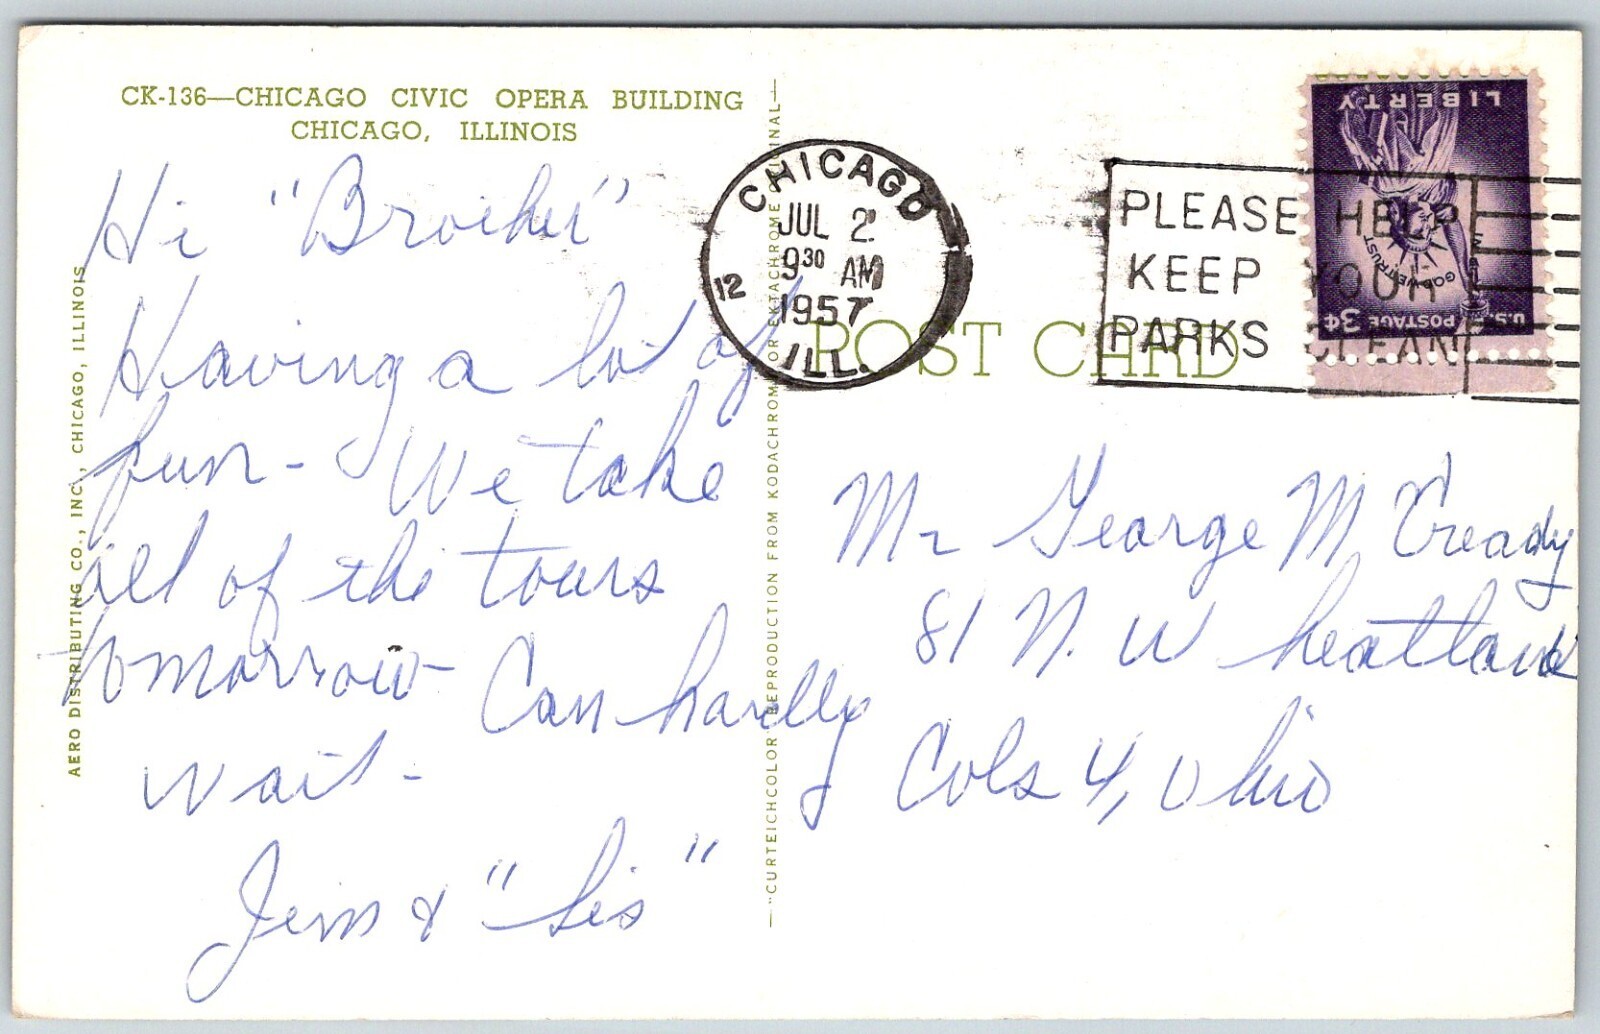 CK-136—CHICAGO CIVIC OPERA BUILDING
CHICAGO, ILLINOIS
Hi "Brother"
Having a lot of
fun - We take
all of the tours
tomorrow - Can hardly
wait -
Jim & "Sis"
AERO DISTRIBUTING CO., INC., CHICAGO, ILLINOIS
—"CURTEICHCOLOR REPRODUCTION FROM KODACHROME OR EKTACHROME ORIGINAL—
POST CARD
CHICAGO
JUL 2
9 30 AM
12
1957
ILL.
PLEASE HELP
KEEP YOUR
PARKS CLEAN
LIBERTY
IN GOD WE TRUST
U.S. POSTAGE 3¢
Mr George McCready
81 N. Wheatland
Cols 4, Ohio